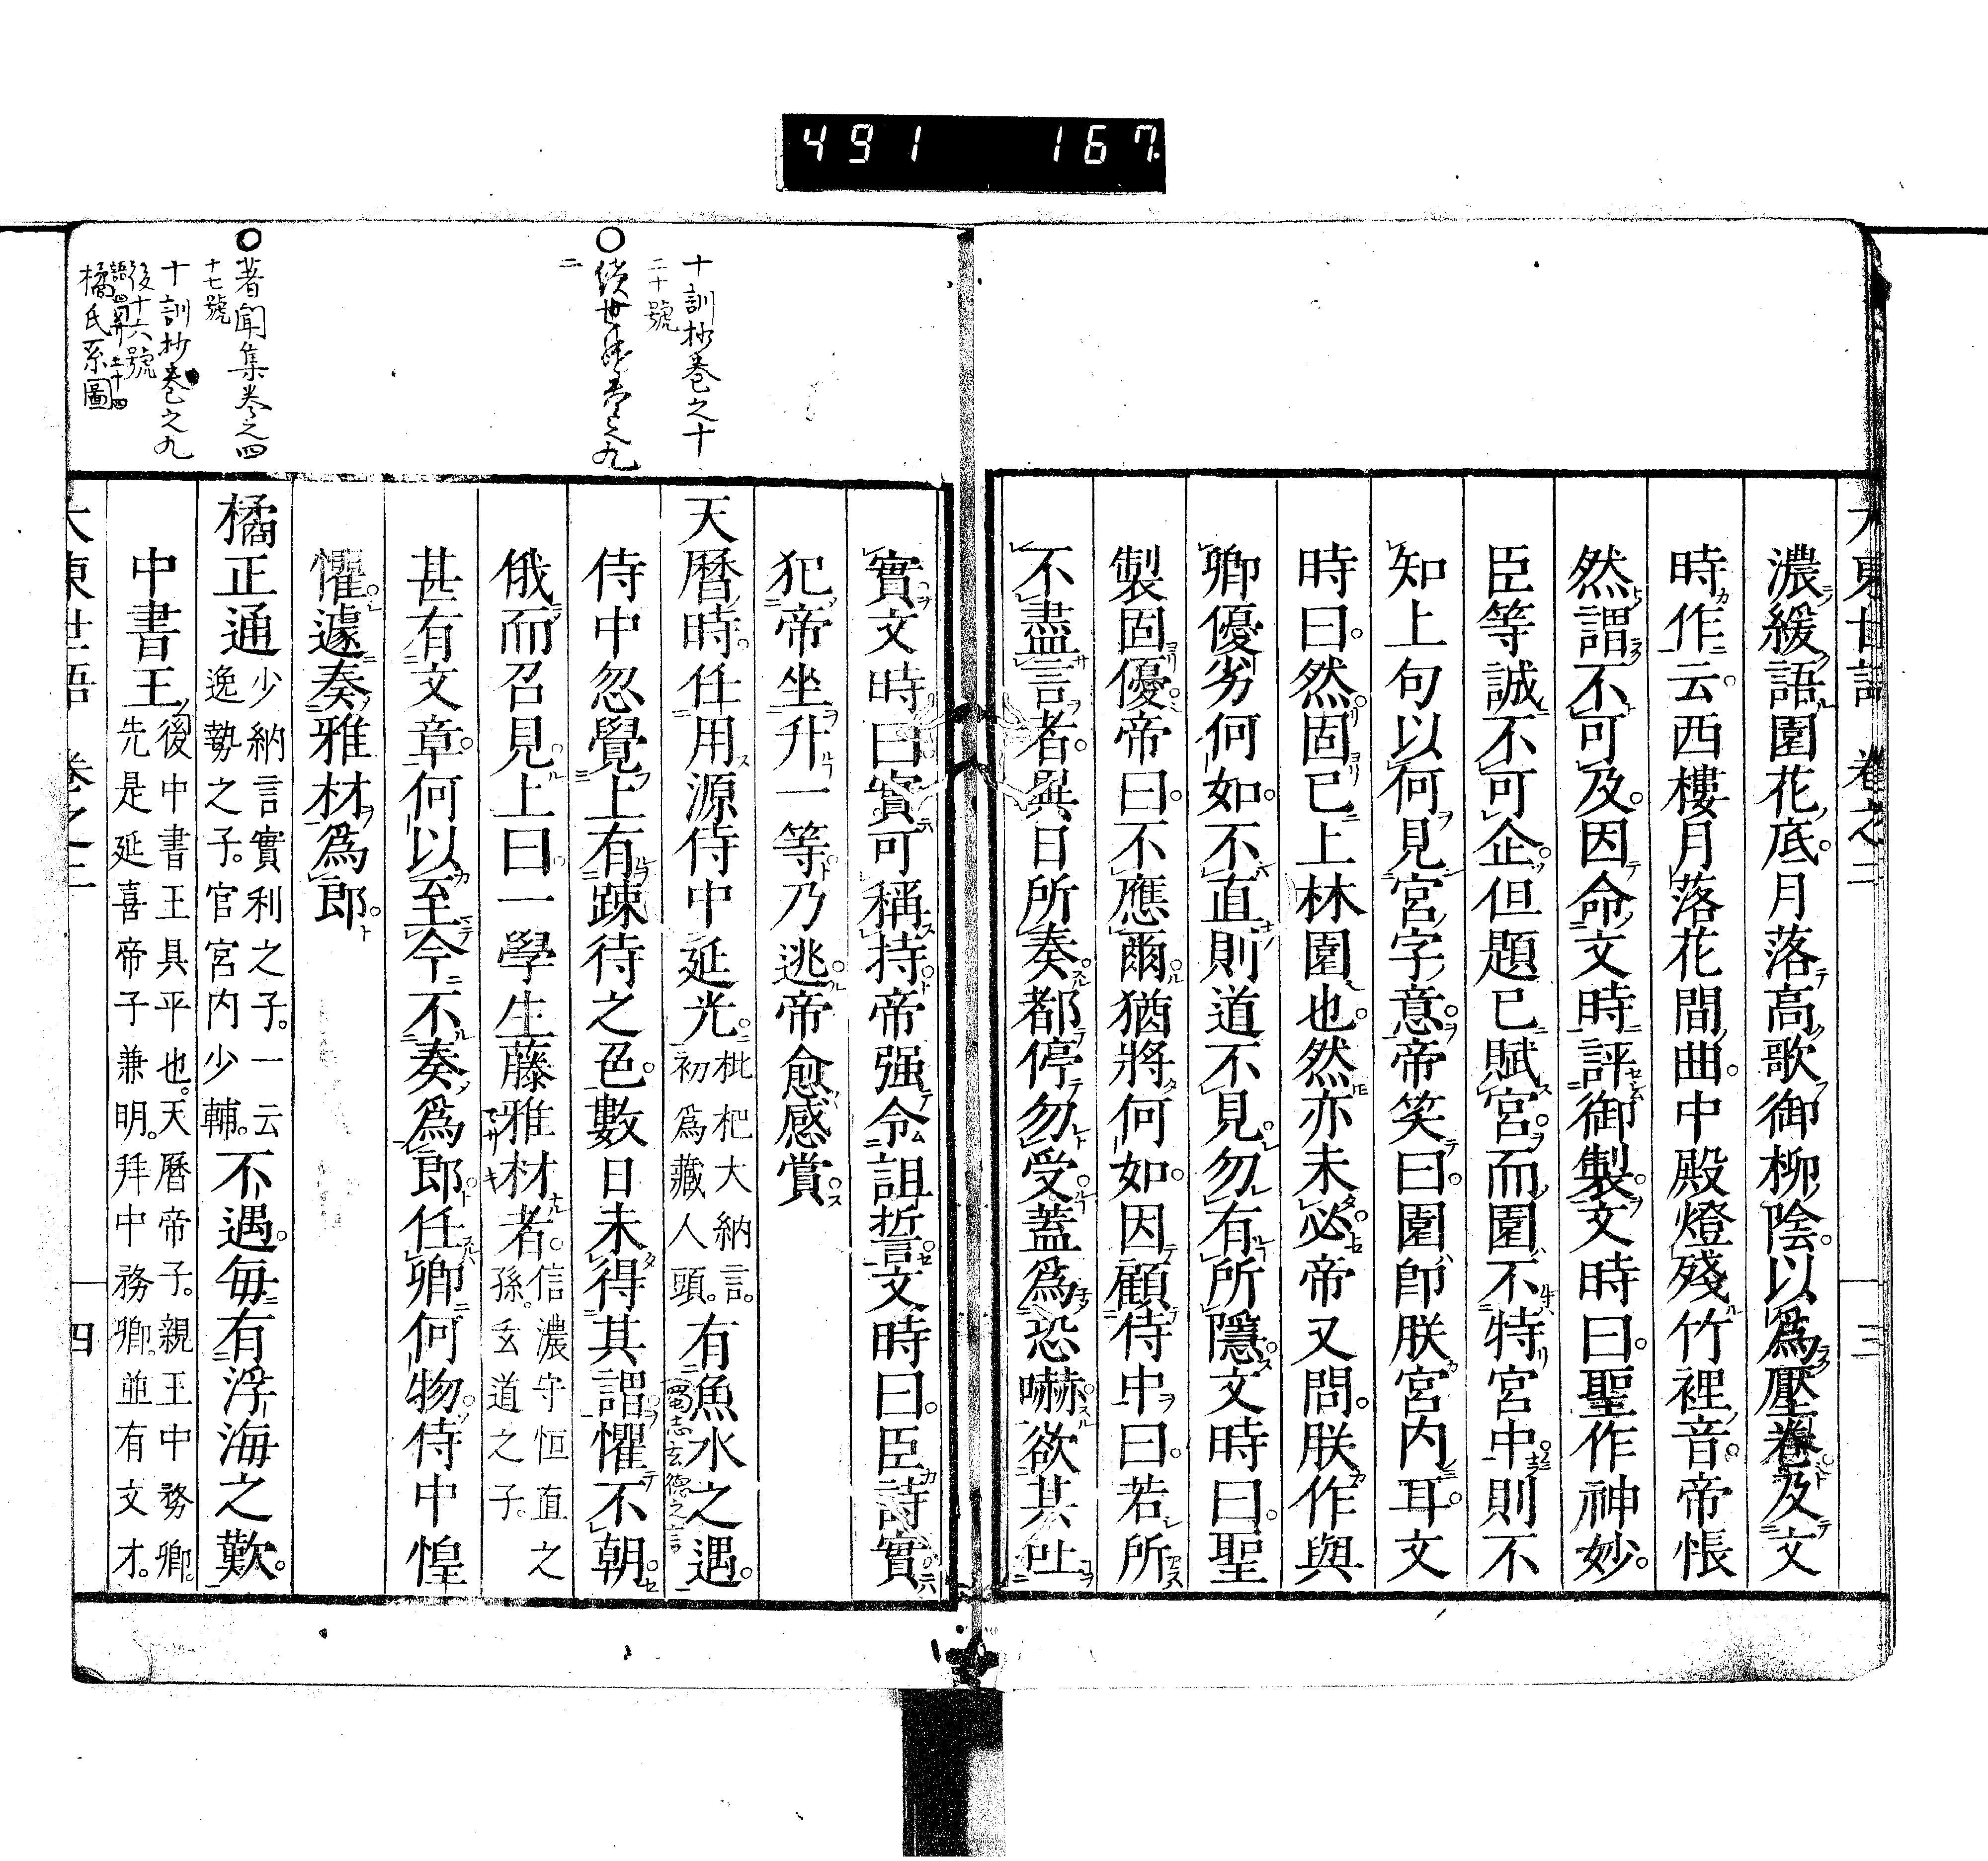 491 167
大東世語 卷之二 三
濃緩語園花底。月落高歌御柳陰。以爲壓卷及文
時作云。西樓月落花間曲。中殿燈殘竹裡音。帝悵
然謂不可及。因命文時評御製。文時曰。聖作神妙。
臣等誠不可企。但題已賦宮而園不特宮中則不
知上句以何見宮字意。帝笑曰。園卽朕宮内耳。文
時曰。然。固已上林園也。然亦未必帝又問。朕作與
卿優劣何如。不直則道不見。勿有所隱。文時曰。聖
製固優。帝曰。不應爾。猶將何如。因顧侍中曰。若所
不盡言者。與日所奏都停勿受。蓋爲恐嚇欲其吐
實。文時曰實可稱持。帝强令詛誓。文時曰。臣詩實
犯帝坐升一等。乃逃。帝愈感賞。
天曆時。任用源侍中延光。枇杷大納言。初爲藏人頭。有魚水之遇。
蜀志玄德之言
侍中忽覺上有踈待之色。數日未得其謂。懼不朝。
俄而召見。上曰。一學生藤雅材者。信濃守恒直之孫。玄道之子。
甚有文章。何以至今不奏爲郎。任卿何物。侍中惶
懼。遽奏雅材爲郎。
橘正通少納言實利之子。一云逸勢之子。官宮内少輔。不遇。毎有浮海之歎。
中書王後中書王具平也。天曆帝子。親王中務卿。先是延喜帝子兼明。拜中務卿。並有文才。
大東世語 卷之二 四
十訓抄卷之十
二十號
○續世継卷之九
二
○著聞集卷之四
十七號
十訓抄卷之九
後十六號
橘氏系圖